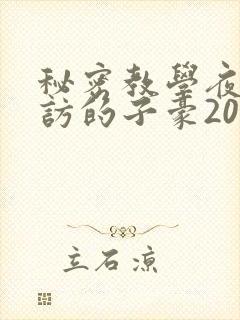 秘密教學夜
訪的子豪20
立石涼